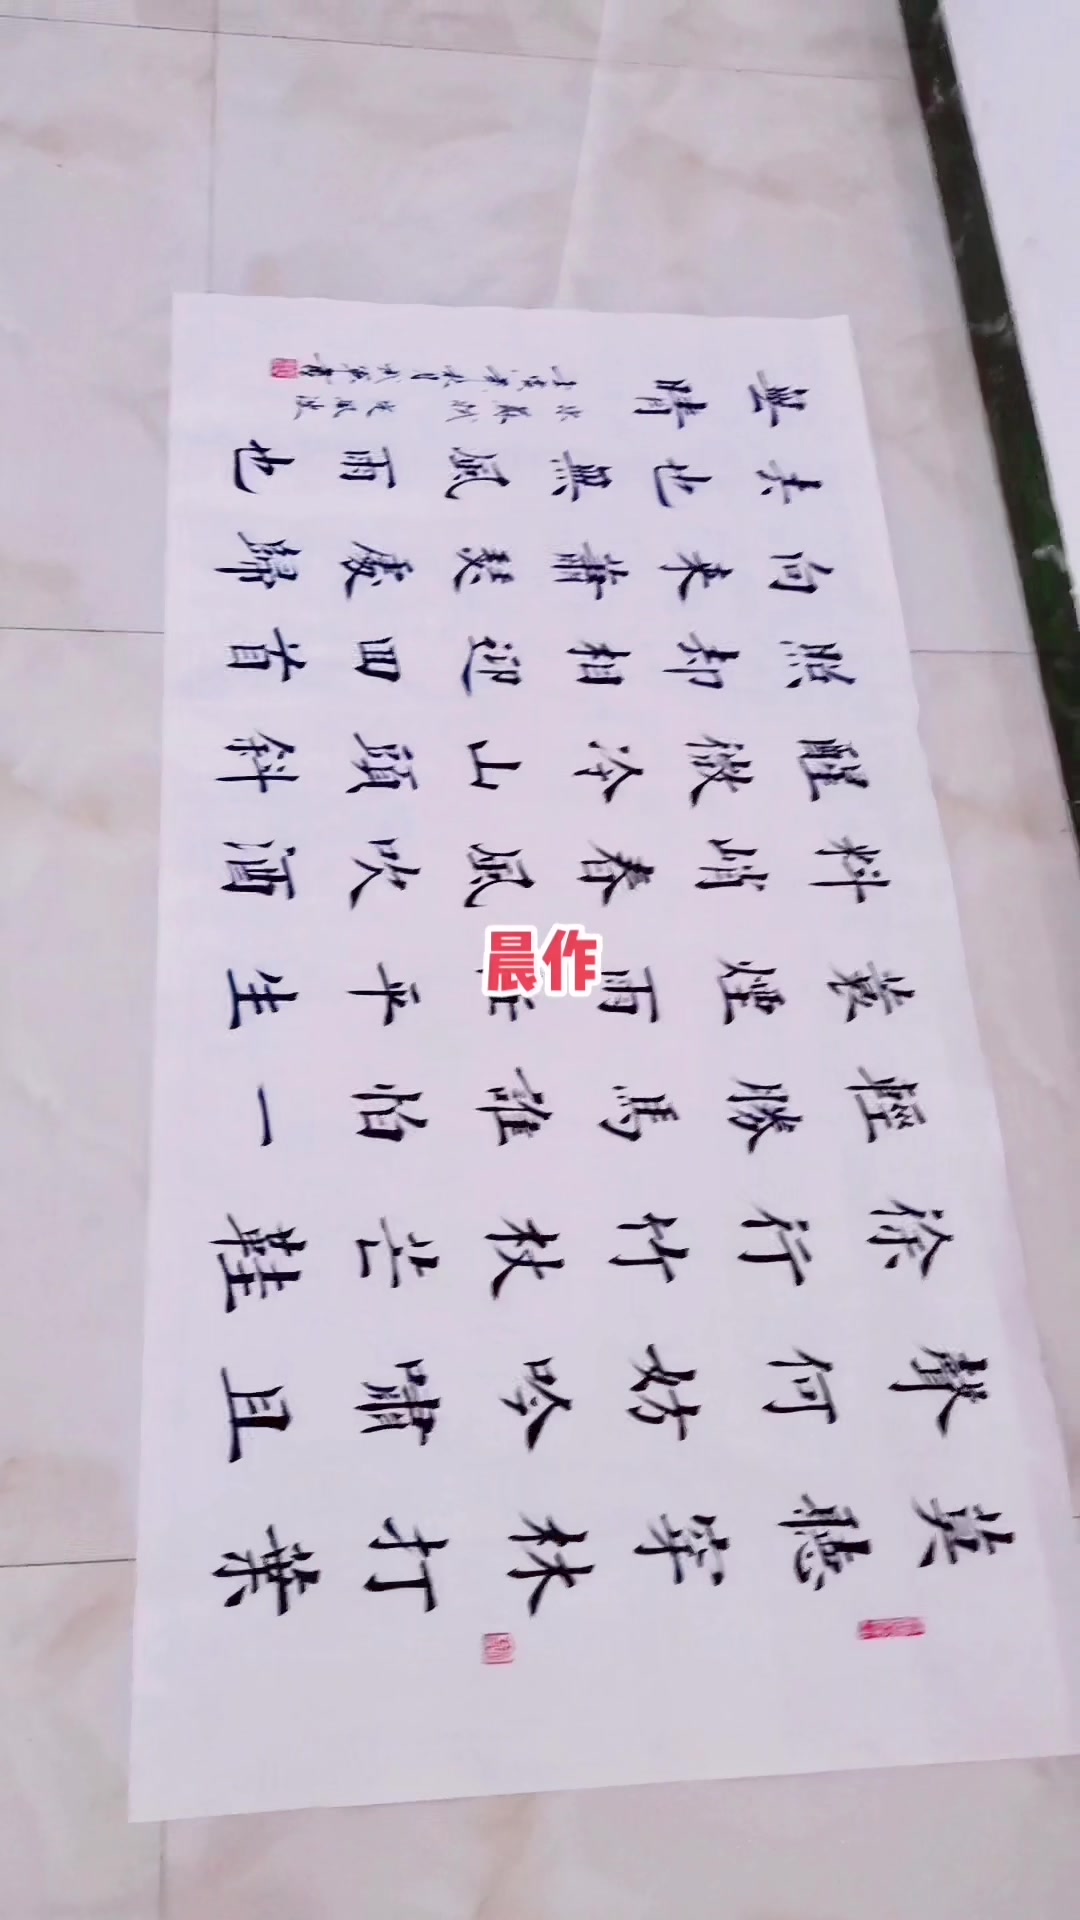 莫聽穿林打葉
聲何妨吟嘯且
徐行竹杖芒鞋
輕勝馬誰怕一
蓑煙雨任平生
料峭春風吹酒
醒微冷山頭斜
照却相迎回首
向来蕭瑟處歸
去也無風雨也
無晴
蘇軾定風波
晨作